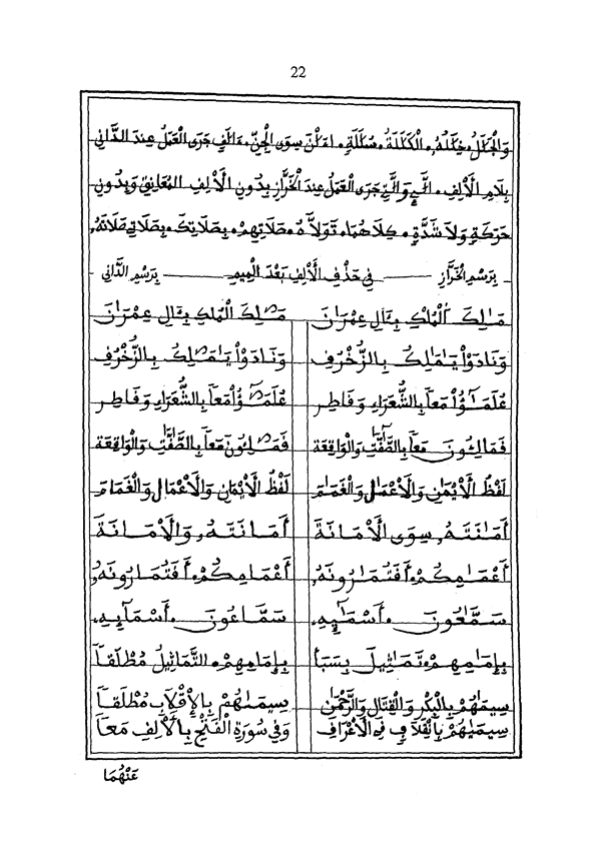 22
وَالْجَلَلُ خِلَلَهُ، الْكَلَلَةُ سُلَلَةٍ سِوَى الْجِنّ جَرَى الْعَمَلُ عِندَ الدَّانِي
بِلَامِ الْأَلِفِ جَرَى الْعَمَلُ عِندَ الْخَرَّازِ بِدُونِ الْأَلِفِ الْمُعَانِقِ وَبِدُونِ
حَرَكَةٍ وَلَا شَدَّةٍ كِلَاهُمَا تَوَلَّاهُ صَلَاتِهِمْ بِصَلَاتِكَ بِصَلَاتِي صَلَاتَهُ،
بِرَسْمِ الْخَرَّازِ — فِي حَذْفِ الْأَلِفِ بَعْدَ الْمِيمِ — بِرَسْمِ الدَّانِي
مَٰلِكَ الْمُلْكِ بِئَالِ عِمْرَٰنَ مَٰلِكَ الْمُلْكِ بِئَالِ عِمْرَٰنَ
وَنَادَوْاْ يَٰمَٰلِكُ بِالزُّخْرُفِ وَنَادَوْاْ يَٰمَٰلِكُ بِالزُّخْرُفِ
عُلَمَٰٓؤُاْ مَعاً بِالشُّعَرَاءِ وَفَاطِرِ عُلَمَٰٓؤُاْ مَعاً بِالشُّعَرَاءِ وَفَاطِرِ
فَمَالِـُٔونَ مَعاً بِالصَّٰٓفَّٰتِ وَالْوَاقِعَة فَمَٰلِـُٔونَ مَعاً بِالصَّٰٓفَّٰتِ وَالْوَاقِعَة
لَفْظُ الْأَيْمَٰنِ وَالْأَعْمَٰلِ وَالْغَمَٰمِ لَفْظُ الْأَيْمَٰنِ وَالْأَعْمَالِ وَالْغَمَامِ
أَمَٰنَتَهُ، سِوَى الْأَمَانَةَ أَمَانَتَهُ، وَالْأَمَانَةَ
أَعْمَٰمِكُمْ، أَفَتُمَٰرُونَهُ، أَعْمَامِكُمْ، أَفَتُمَارُونَهُ،
سَمَّٰعُونَ، أَسْمَٰٓئِهِ، سَمَّاعُونَ، أَسْمَآئِهِ،
بِإِمَٰمِهِمْ، تَمَٰثِيلَ بِسَبَأ بِإِمَامِهِمْ، التَّمَاثِيلُ مُطْلَقاً
سِيمَٰهُمْ بِالْبِكْرِ وَالْقِتَالِ وَالرَّحْمَٰن سِيمَٰهُمْ بِالْإِقْلَابِ مُطْلَقاً
سِيمَٰهُمْ بِانْقِلَابٍ فِي الْأَعْرَافِ وَفِي سُورَةِ الْفَتْحِ بِالْأَلِفِ مَعاً
عَنْهُمَا